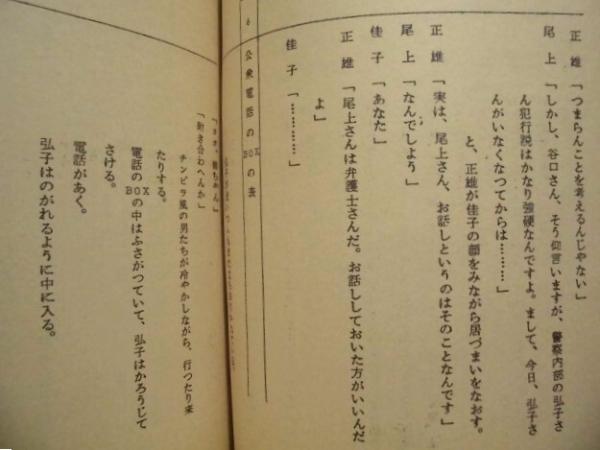 正雄「つまらんことを考えるんじゃない」
尾上「しかし、谷口さん、そう仰言いますが、警察内部の弘子さ
ん犯行説はかなり強硬なんですよ。まして、今日、弘子さ
んがいなくなつてからは………」
と、正雄が佳子の顔をみながら居づまいをなおす。
正雄「実は、尾上さん、お話しというのはそのことなんです」
尾上「なんでしょう」
佳子「あなた」
正雄「尾上さんは弁護士さんだ。お話ししておいた方がいいんだ
よ」
佳子「…………」
6 公衆電話のBOXの表
「付き合わへんか」
チンピラ風の男たちが冷やかしながら、行つたり来
たりする。
電話のBOXの中はふさがつていて、弘子はかろうじて
さける。
電話があく。
弘子はのがれるように中に入る。